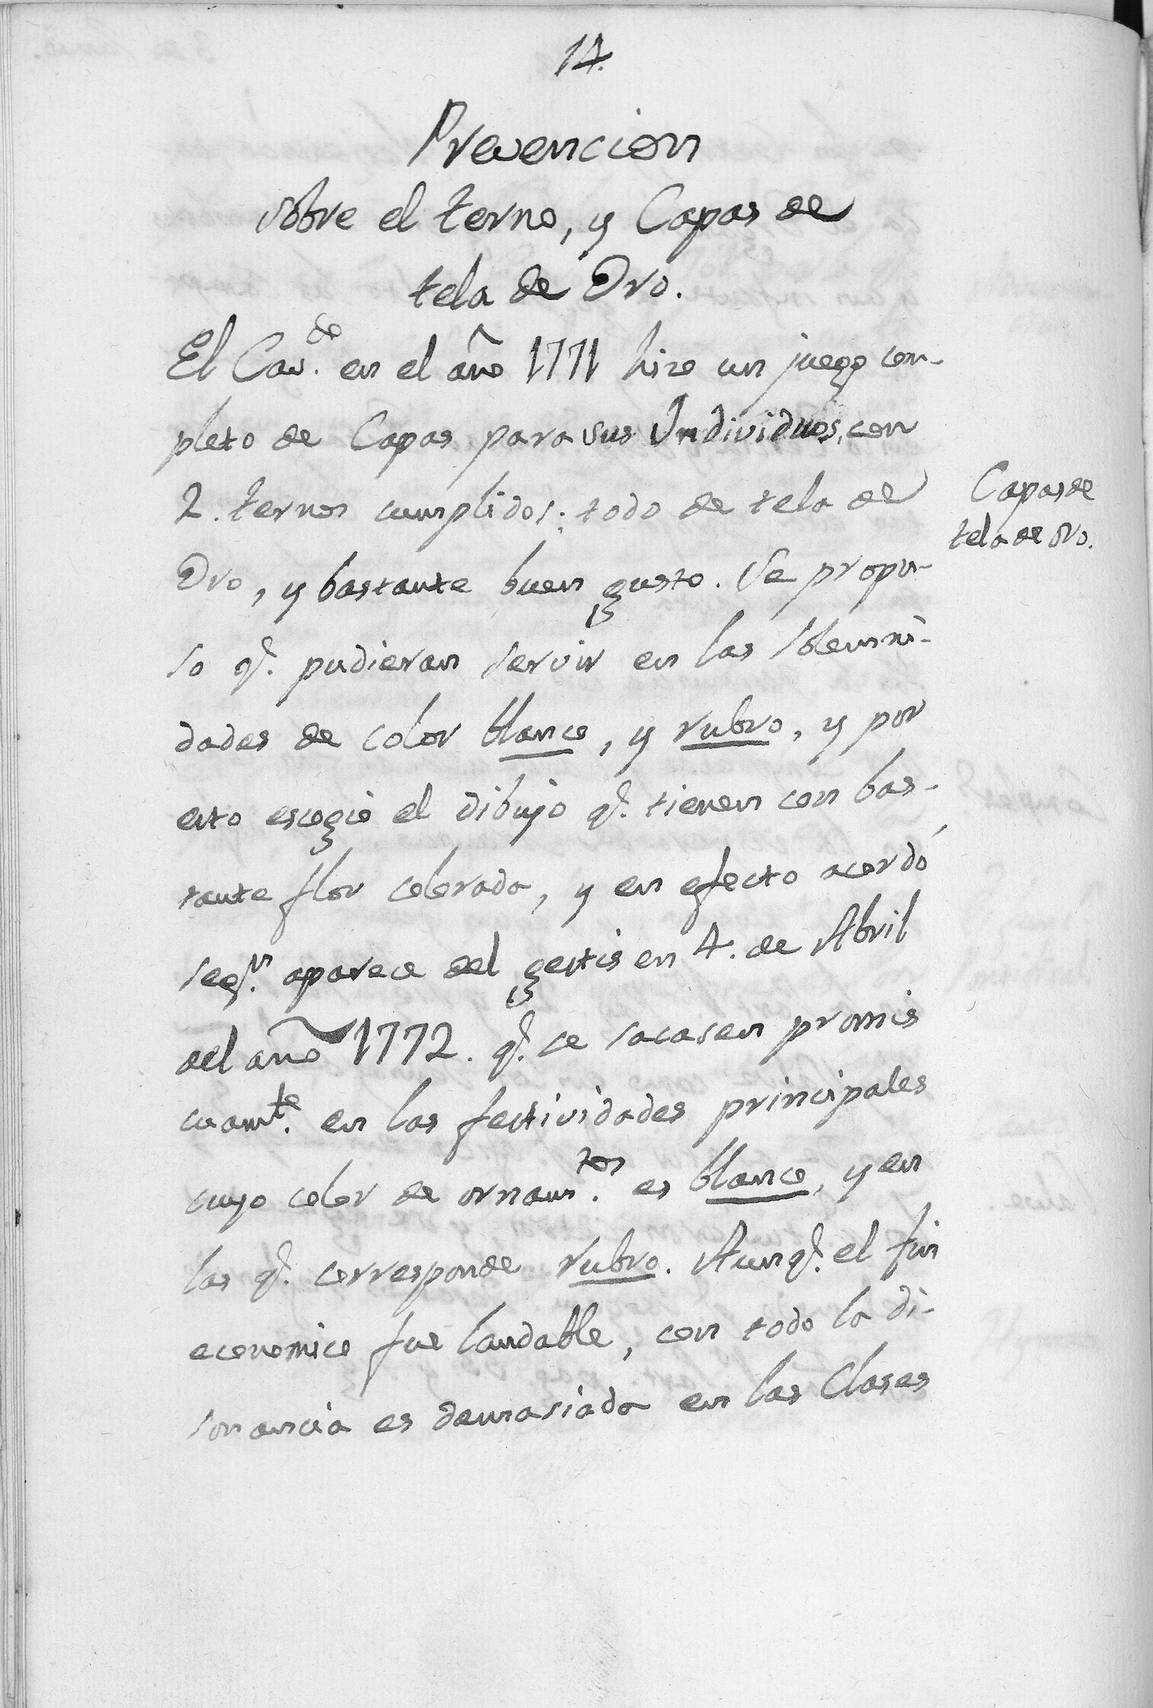 14.
Prevencion
sobre el terno, y Capas de
tela de Oro.
El Cav.do en el año 1771 hizo un juego com-
pleto de Capas para sus Individuos, con
2. ternos cumplidos; todo de tela de
Capas de
tela de oro.
Oro, y bastante buen gusto. Se propu-
so q.e pudieran servir en las solemni-
dades de color blanco, y rubro, y por
esto escogió el dibujo q.e tienen con bas-
tante flor colorada, y en efecto acordó
seg.n aparece del gestis en 4. de Abril
del año 1772. q.e se sacasen promis
cuam.te en las festividades principales
cuyo color de ornam.tos es blanco, y en
las q.e corresponde rubro. Aunq.e el fin
economico fue laudable, con todo la di-
sonancia es demasiada en las Clases